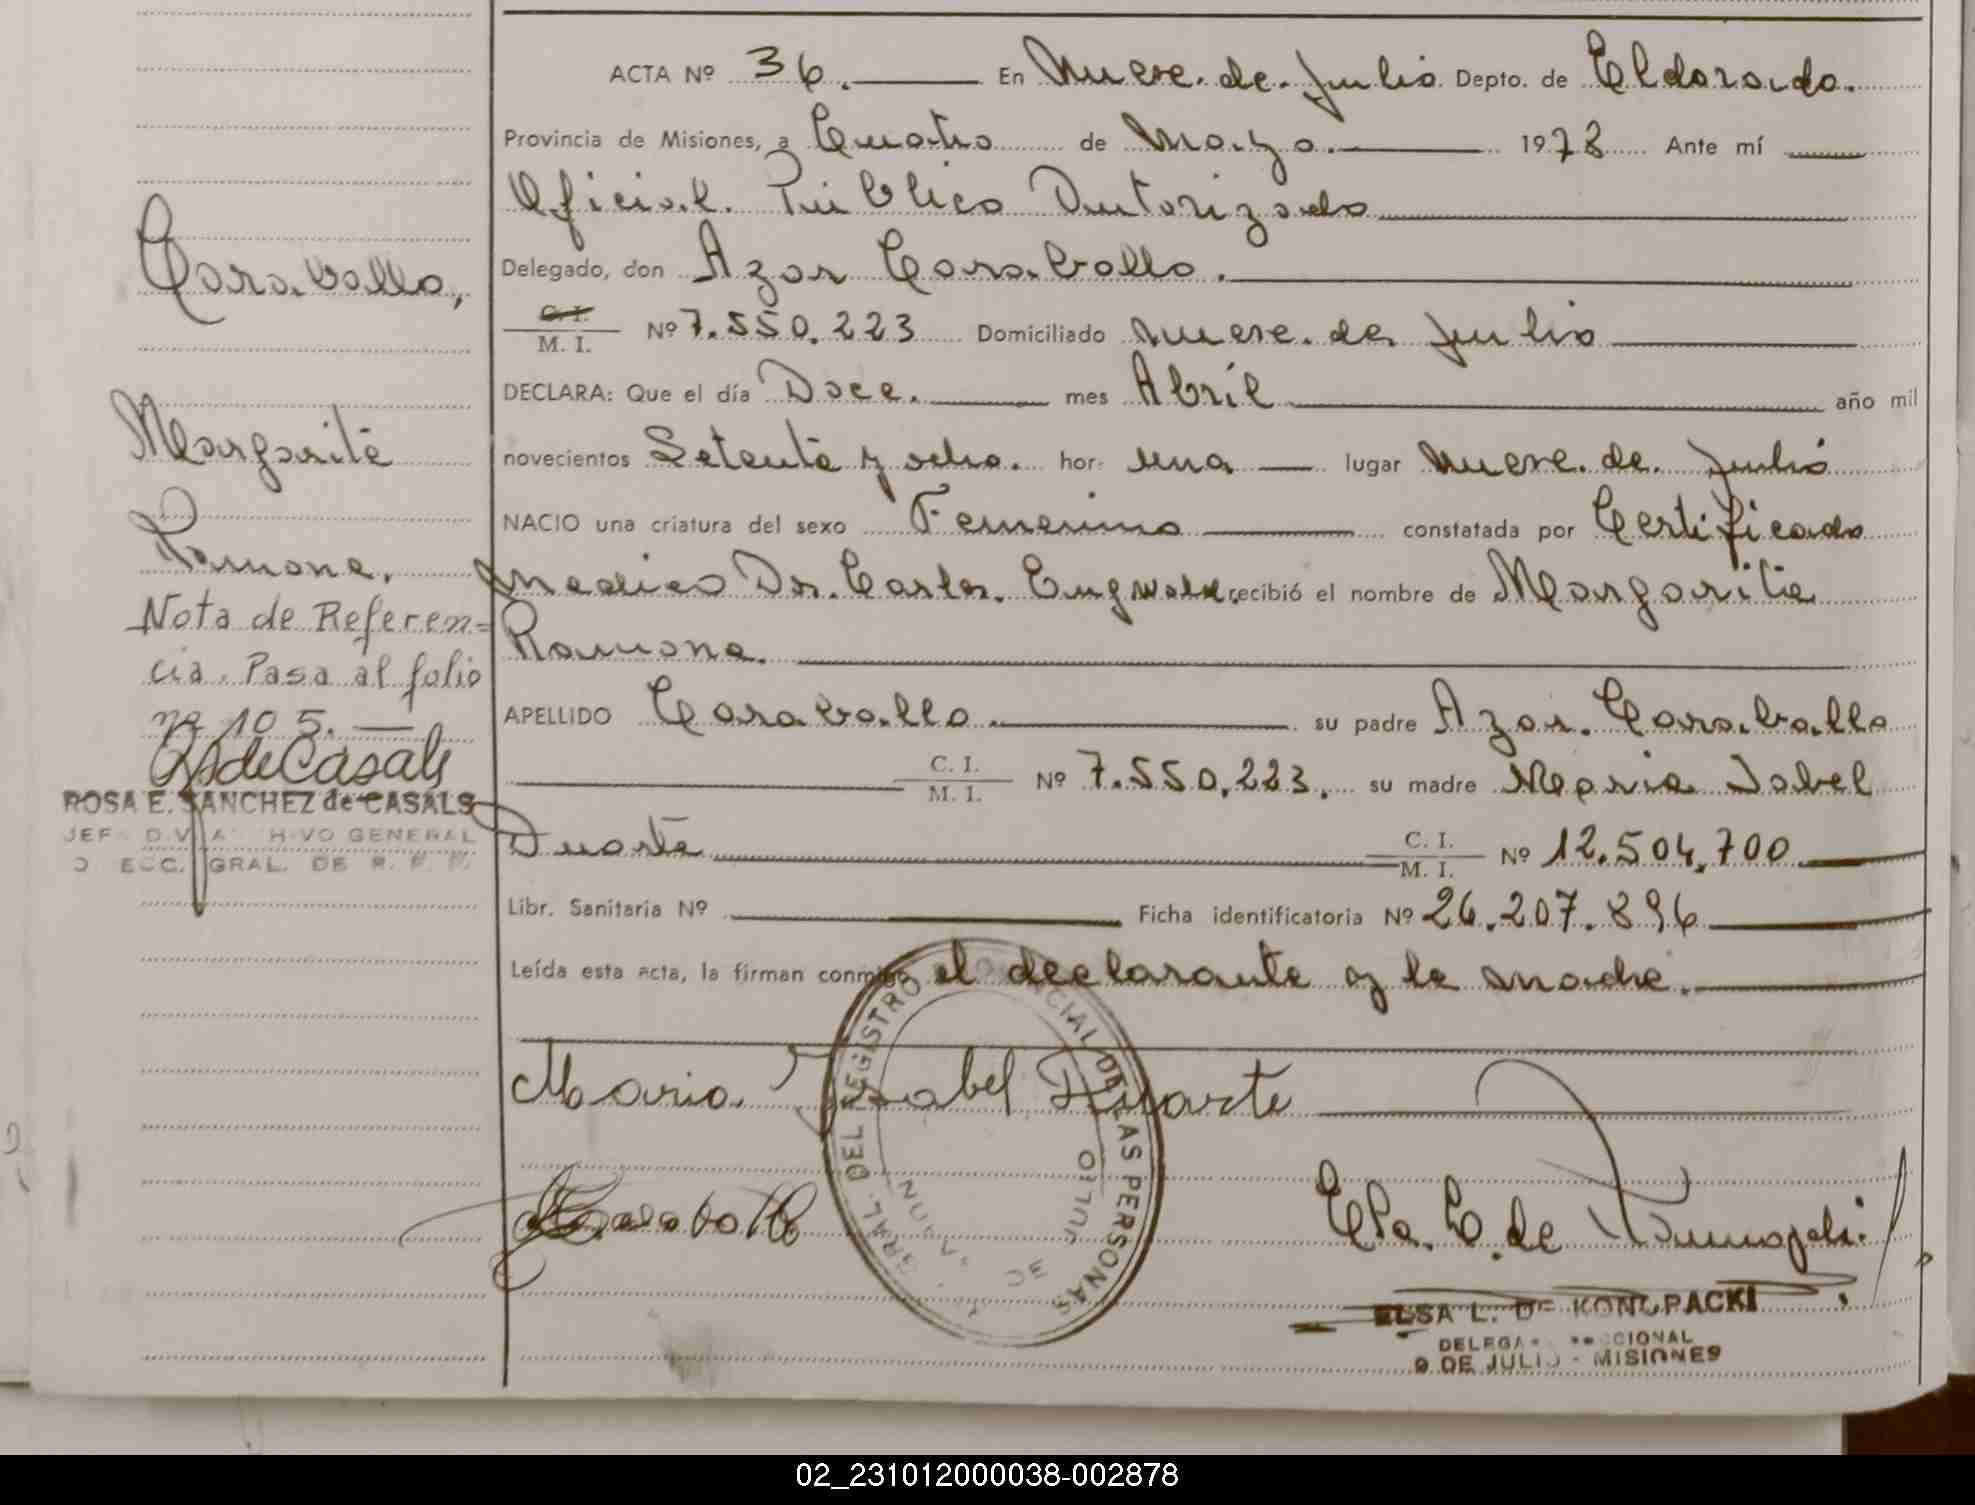 ACTA Nº 36. En Nueve. de. Julio. Depto. de Eldorado.
Provincia de Misiones, a Cuatro de Mayo. 1978 Ante mí
Oficial. Público Autorizado
Delegado, don Azar Caraballo.
C. I.
M. I. Nº 7.550.223 Domiciliado Nueve. de Julio
DECLARA: Que el día Doce. mes Abril año mil
novecientos Setenta y ocho. hor: una lugar Nueve. de. Julio
NACIO una criatura del sexo Femenino constatada por Certificado
Medico Dr. Carlos. recibió el nombre de Margarita
Ramona.
APELLIDO Caraballo. su padre Azar. Caraballo
C. I.
M. I. Nº 7.550.223. su madre Maria Isabel
Duarte C. I.
M. I. Nº 12.504.700
Libr. Sanitaria Nº Ficha identificatoria Nº 26.207.896
Leída esta acta, la firman conmigo el declarante y la madre.
Maria Isabel Duarte
Caraballo
ELSA L. DE KONOPACKI
DELEGA SECCIONAL
9 DE JULIO - MISIONES
GRAL. DEL REGISTRO PROVINCIAL DE LAS PERSONAS
DE JULIO
Caraballo,
Margarita
Ramona.
Nota de Referen=
cia. Pasa al folio
nº 105.
RSdeCasals
ROSA E. SANCHEZ de CASALS
JEFE DIV. ARCHIVO GENERAL
DIRECC. GRAL. DE R. P. P.
02_231012000038-002878